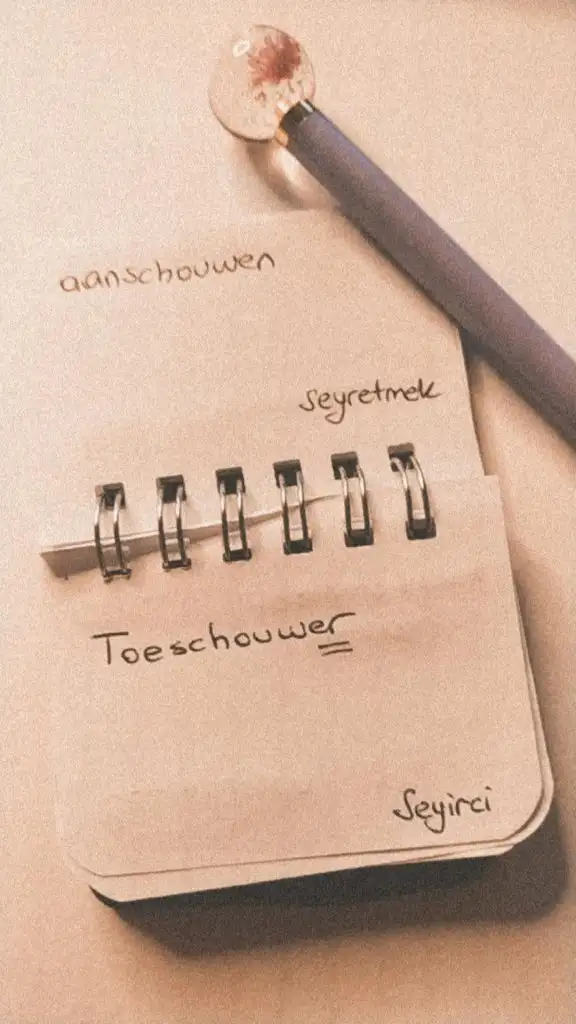 aanschouwen
seyretmek
Toeschouwer
Seyirci